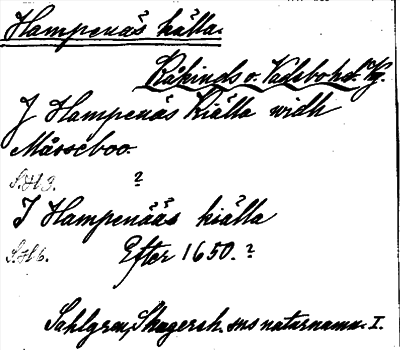 Hampenäs källa.
Kåkinds o. Vadsbo hd. Vg.
J Hampenäs Kiälla widh
Måsseboo.
S.H 3. ?
I Hampenääs kiälla
S.H 6. Efter 1650.?
Sahlgren, Skagersh. sns naturnamn. I.